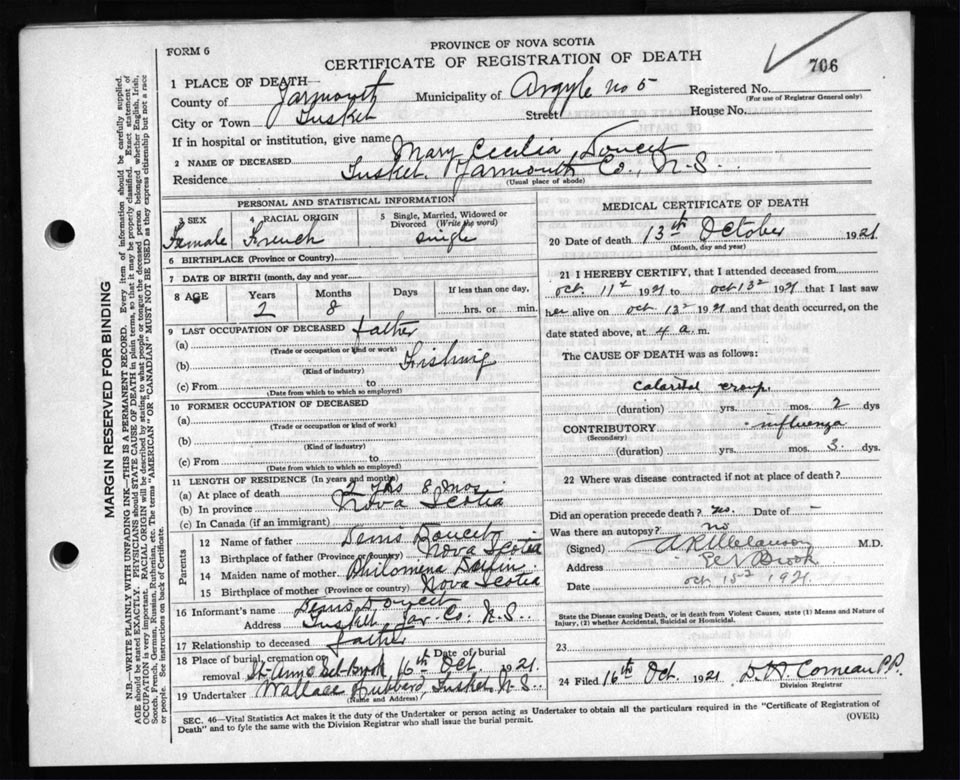 FORM 6
PROVINCE OF NOVA SCOTIA
CERTIFICATE OF REGISTRATION OF DEATH
706
1 PLACE OF DEATH—
County of Yarmouth Municipality of Argyle no 5 Registered No.
(For use of Registrar General only)
City or Town Tusket Street House No.
If in hospital or institution, give name
2 NAME OF DECEASED Mary Cecilia Doucet
Residence Tusket. Yarmouth Co., N.S.
(Usual place of abode)
PERSONAL AND STATISTICAL INFORMATION
3 SEX Female
4 RACIAL ORIGIN French
5 Single, Married, Widowed or Divorced (Write the word) single
6 BIRTHPLACE (Province or Country)
7 DATE OF BIRTH (month, day and year)
8 AGE Years 2 Months 8 Days If less than one day, hrs. or min.
9 LAST OCCUPATION OF DECEASED father
(a)
(Trade or occupation or kind of work)
(b) Fishing
(Kind of industry)
(c) From to
(Date from which to which so employed)
10 FORMER OCCUPATION OF DECEASED
(a)
(Trade or occupation or kind of work)
(b)
(Kind of industry)
(c) From to
(Date from which to which so employed)
11 LENGTH OF RESIDENCE (In years and months)
(a) At place of death 2 yrs 8 mos
(b) In province Nova Scotia
(c) In Canada (if an immigrant)
Parents
12 Name of father Denis Doucet
13 Birthplace of father (Province or country) Nova Scotia
14 Maiden name of mother Philomena
15 Birthplace of mother (Province or country) Nova Scotia
16 Informant's name Denis Doucet
Address Tusket Yar. Co. N.S.
17 Relationship to deceased father
18 Place of burial, cremation or removal St. Anns Eel Brook Date of burial 16th Oct. 1921.
19 Undertaker Wallace Hubbard, Tusket N.S.
(Name and Address)
MEDICAL CERTIFICATE OF DEATH
20 Date of death 13th October 1921
(Month, day and year)
21 I HEREBY CERTIFY, that I attended deceased from
oct. 11th 1921 to oct 13th 1921 that I last saw
her alive on oct 13th 1921 and that death occurred, on the
date stated above, at 4 a. m.
The CAUSE OF DEATH was as follows:
croup
(duration) yrs. mos. 2 dys
CONTRIBUTORY influenza
(Secondary)
(duration) yrs. mos. 3. dys.
22 Where was disease contracted if not at place of death?
Did an operation precede death? no. Date of -
Was there an autopsy? no
(Signed) A R Melanson M.D.
Address Eel Brook
Date oct. 13th 1921
State the Disease causing Death, or in death from Violent Causes, state (1) Means and Nature of
Injury, (2) whether Accidental, Suicidal or Homicidal.
23
24 Filed 16th Oct. 1921 D. H Comeau P.P.
Division Registrar
SEC. 46—Vital Statistics Act makes it the duty of the Undertaker or person acting as Undertaker to obtain all the particulars required in the "Certificate of Registration of
Death" and to fyle the same with the Division Registrar who shall issue the burial permit.
(OVER)
MARGIN RESERVED FOR BINDING
N.B.—WRITE PLAINLY WITH UNFADING INK—THIS IS A PERMANENT RECORD. Every item of information should be carefully supplied.
AGE should be stated EXACTLY. PHYSICIANS should STATE CAUSE OF DEATH in plain terms, so that it may be properly classified. Exact statement of
OCCUPATION is very important. RACIAL ORIGIN will be described by stating to what people or tongue the deceased person belonged whether English, Irish,
Scotch, French, German, Russian, Ruthenian, etc. The terms "AMERICAN" or "CANADIAN" MUST NOT BE USED as they express citizenship but not a race
or people. See instructions on back of Certificate.